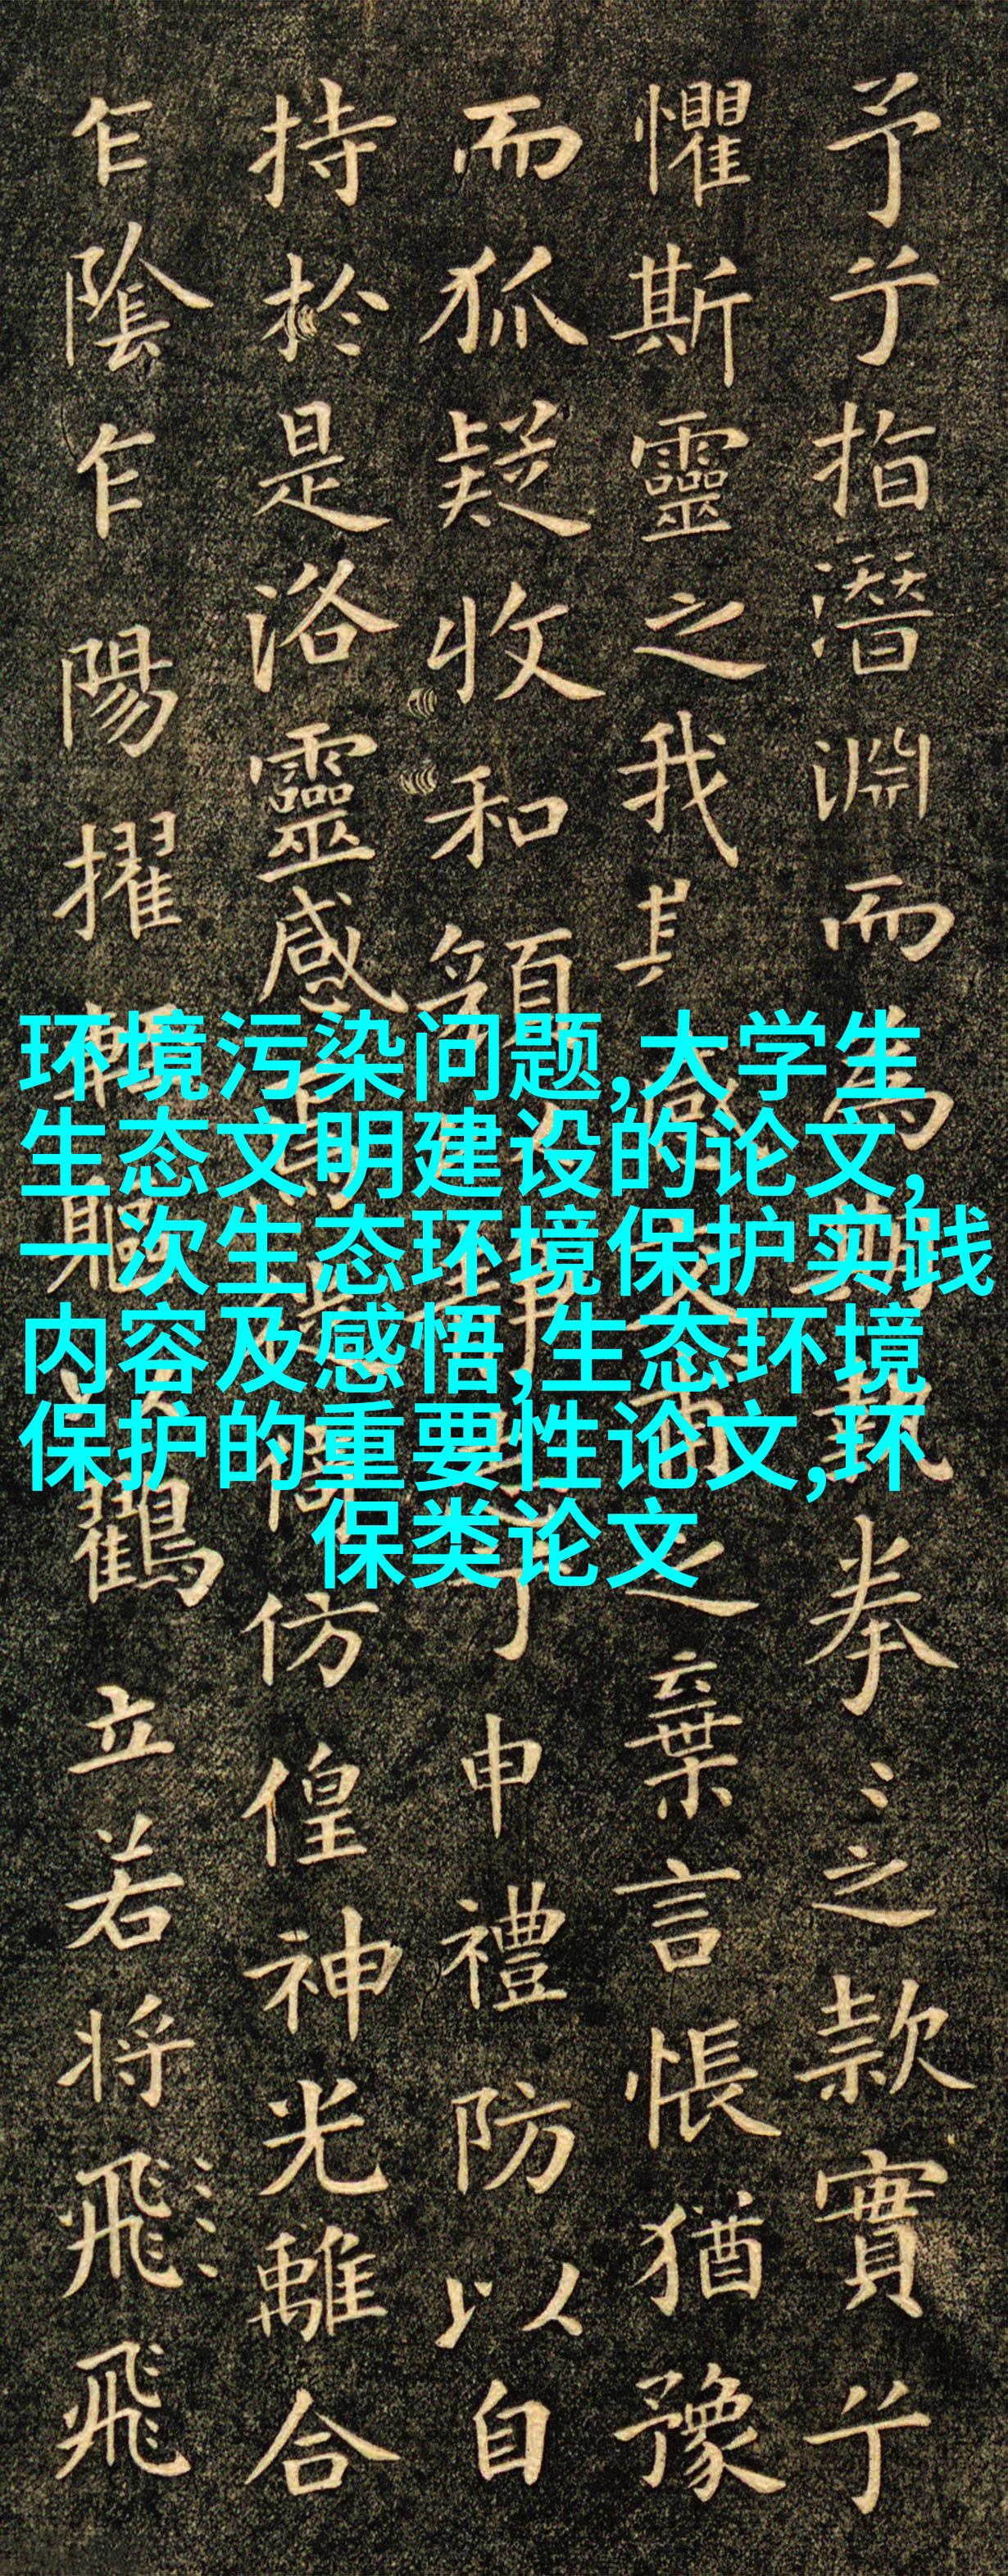 予兮指潛淵而為期執拳〻之款實兮
懼斯靈之我感交甫之棄言悵猶豫
而狐疑收和顏申禮防以自
持於是洛靈感焉徙倚仿偟神光離合
乍陰乍陽擢輕軀以鶴立若將飛飛
环境污染问题,大学生
生态文明建设的论文,
一次生态环境保护实践
内容及感悟,生态环境
保护的重要性论文,环
保类论文